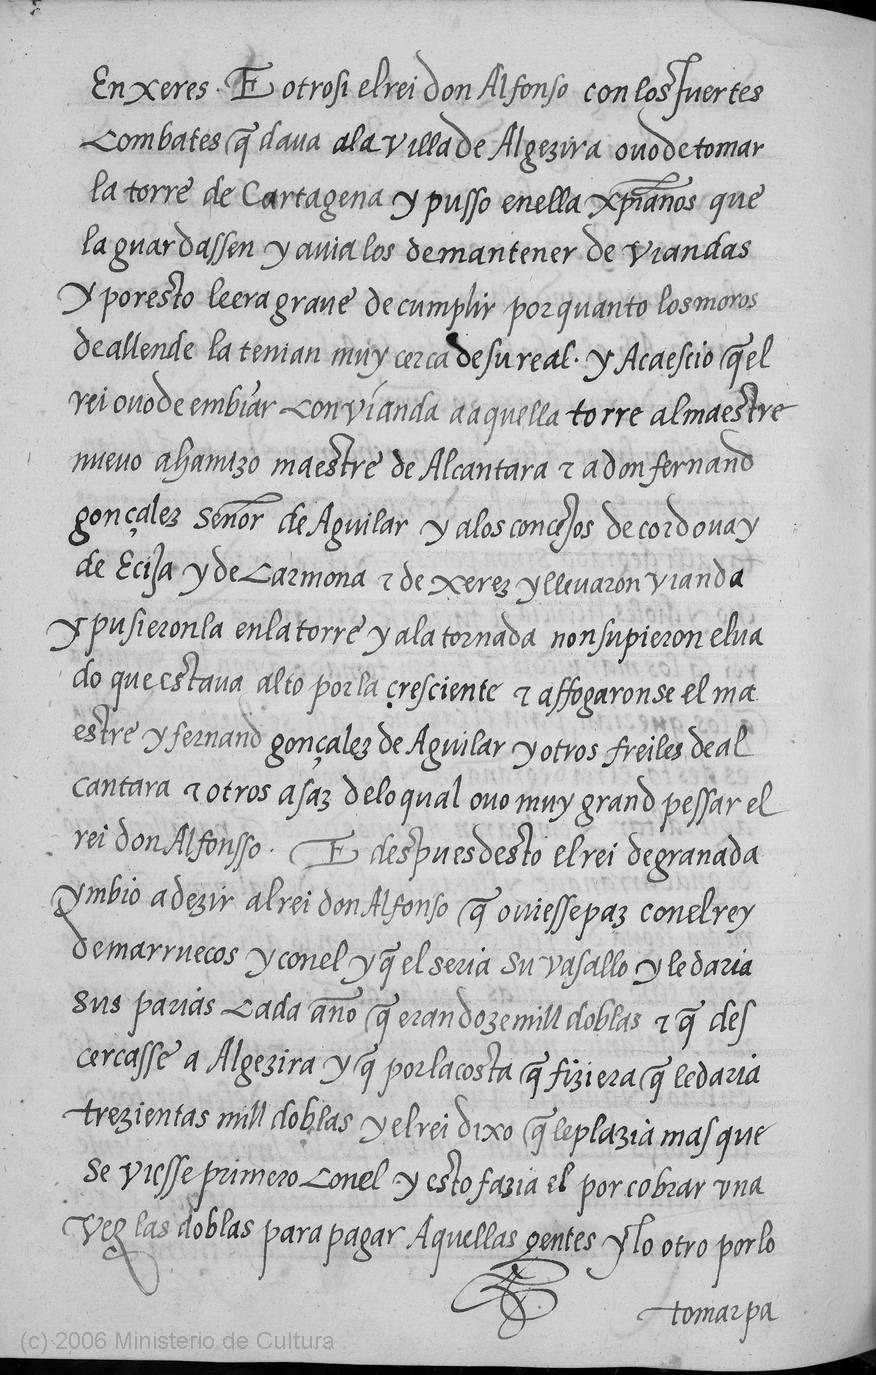 En xeres · E otrosi el rei don Alfonso con los fuertes
combates q̃ daua a la villa de Algezira ouo de tomar
la torre de Cartagena y pusso en ella xp̃ianos que
la guardassen y auia los de mantener de viandas
y por esto le era graue de cumplir por quanto los moros
de allende la tenian muy cerca de su real · y Acaescio q̃ el
rei ouo de embiar con vianda a aquella torre al maestre
nueuo a hamizo maestre de Alcantara τ a don fernand
gonçalez señor de Aguilar y a los concejos de cordoua y
de Ecija y de carmona τ de xerez y lleuaron vianda
y pusieronla en la torre y a la tornada non supieron el va
do que estaua alto por la çresciente τ affogaronse el ma
estre y fernand gonçalez de Aguilar y otros freiles de al
cantara τ otros asaz de lo qual ouo muy grand pessar el
rei don Alfonsso · E despues desto el rei de granada
ymbio a dezir al rei don Alfonso q̃ ouiesse paz con el rey
de marruecos y con el y q̃ el seria su vasallo y le daria
sus parias cada año q̃ eran doze mill doblas τ q̃ des
cercasse a Algezira y q̃ por la costa q̃ fiziera q̃ le daria
trezientas mill doblas y el rei dixo q̃ le plazia mas que
se viesse primero con el · y esto fazia el por cobrar vna
vez las doblas para pagar Aquellas gentes y lo otro por lo
tomar pa
(c) 2006 Ministerio de Cultura